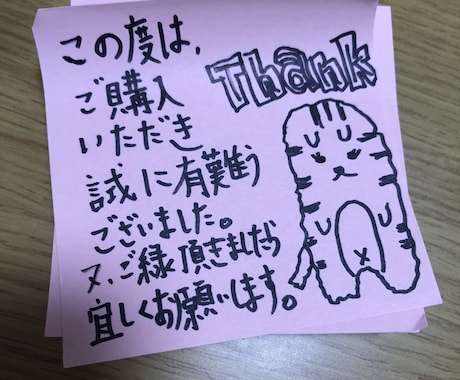 この度は、
Thank
ご購入
いただき
試に有難う
ございました。
又、ご縁頂きましたら
宜しくお願いします。